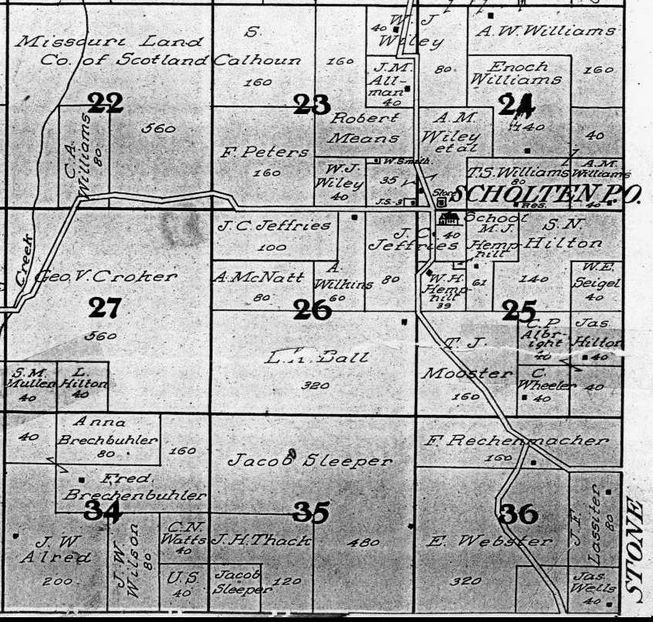 Missouri Land
Co. of Scotland
22
560
C.A. Williams
80
S.
Calhoun
160
160
23
F. Peters
160
Robert
Means
W.J.
Wiley
40
W. J
Wiley
40
J.M.
All-
man
40
80
A.W. Williams
Enoch
Williams
160
24
440
40
A.M.
Wiley
et al
W. Smith
35
J.S.
T.S. Williams
80
A.M.
Williams
40
Store
SCHOLTEN P.O.
Res.
School
Creek
Geo. V. Croker
27
560
S.M.
Mullen
40
L.
Hilton
40
J.C. Jeffries
100
A. McNatt
80
A.
Wilkins
60
J. C.
Jeffries
40
80
26
L.K. Ball
320
M.J.
Hemp-
hill
S.N.
Hilton
W.H.
Hemp-
hill
39
61
140
W.E.
Seigel
40
25
C.P.
Albr-
ight
40
Jas.
Hilton
40
T. J.
Mooster
160
C.
Wheeler
40
40
40
Anna
Brechbuhler
80
160
Fred.
Brechenbuhler
34
J. W
Alred
200
J.W.
Wilson
80
C.N.
Watts
40
U.S.
40
Jacob Sleeper
35
J.H. Thack
480
Jacob
Sleeper
120
F. Rechenmacher
160
36
E. Webster
320
J. F.
Lassiter
80
Jas.
Wells
40
STONE